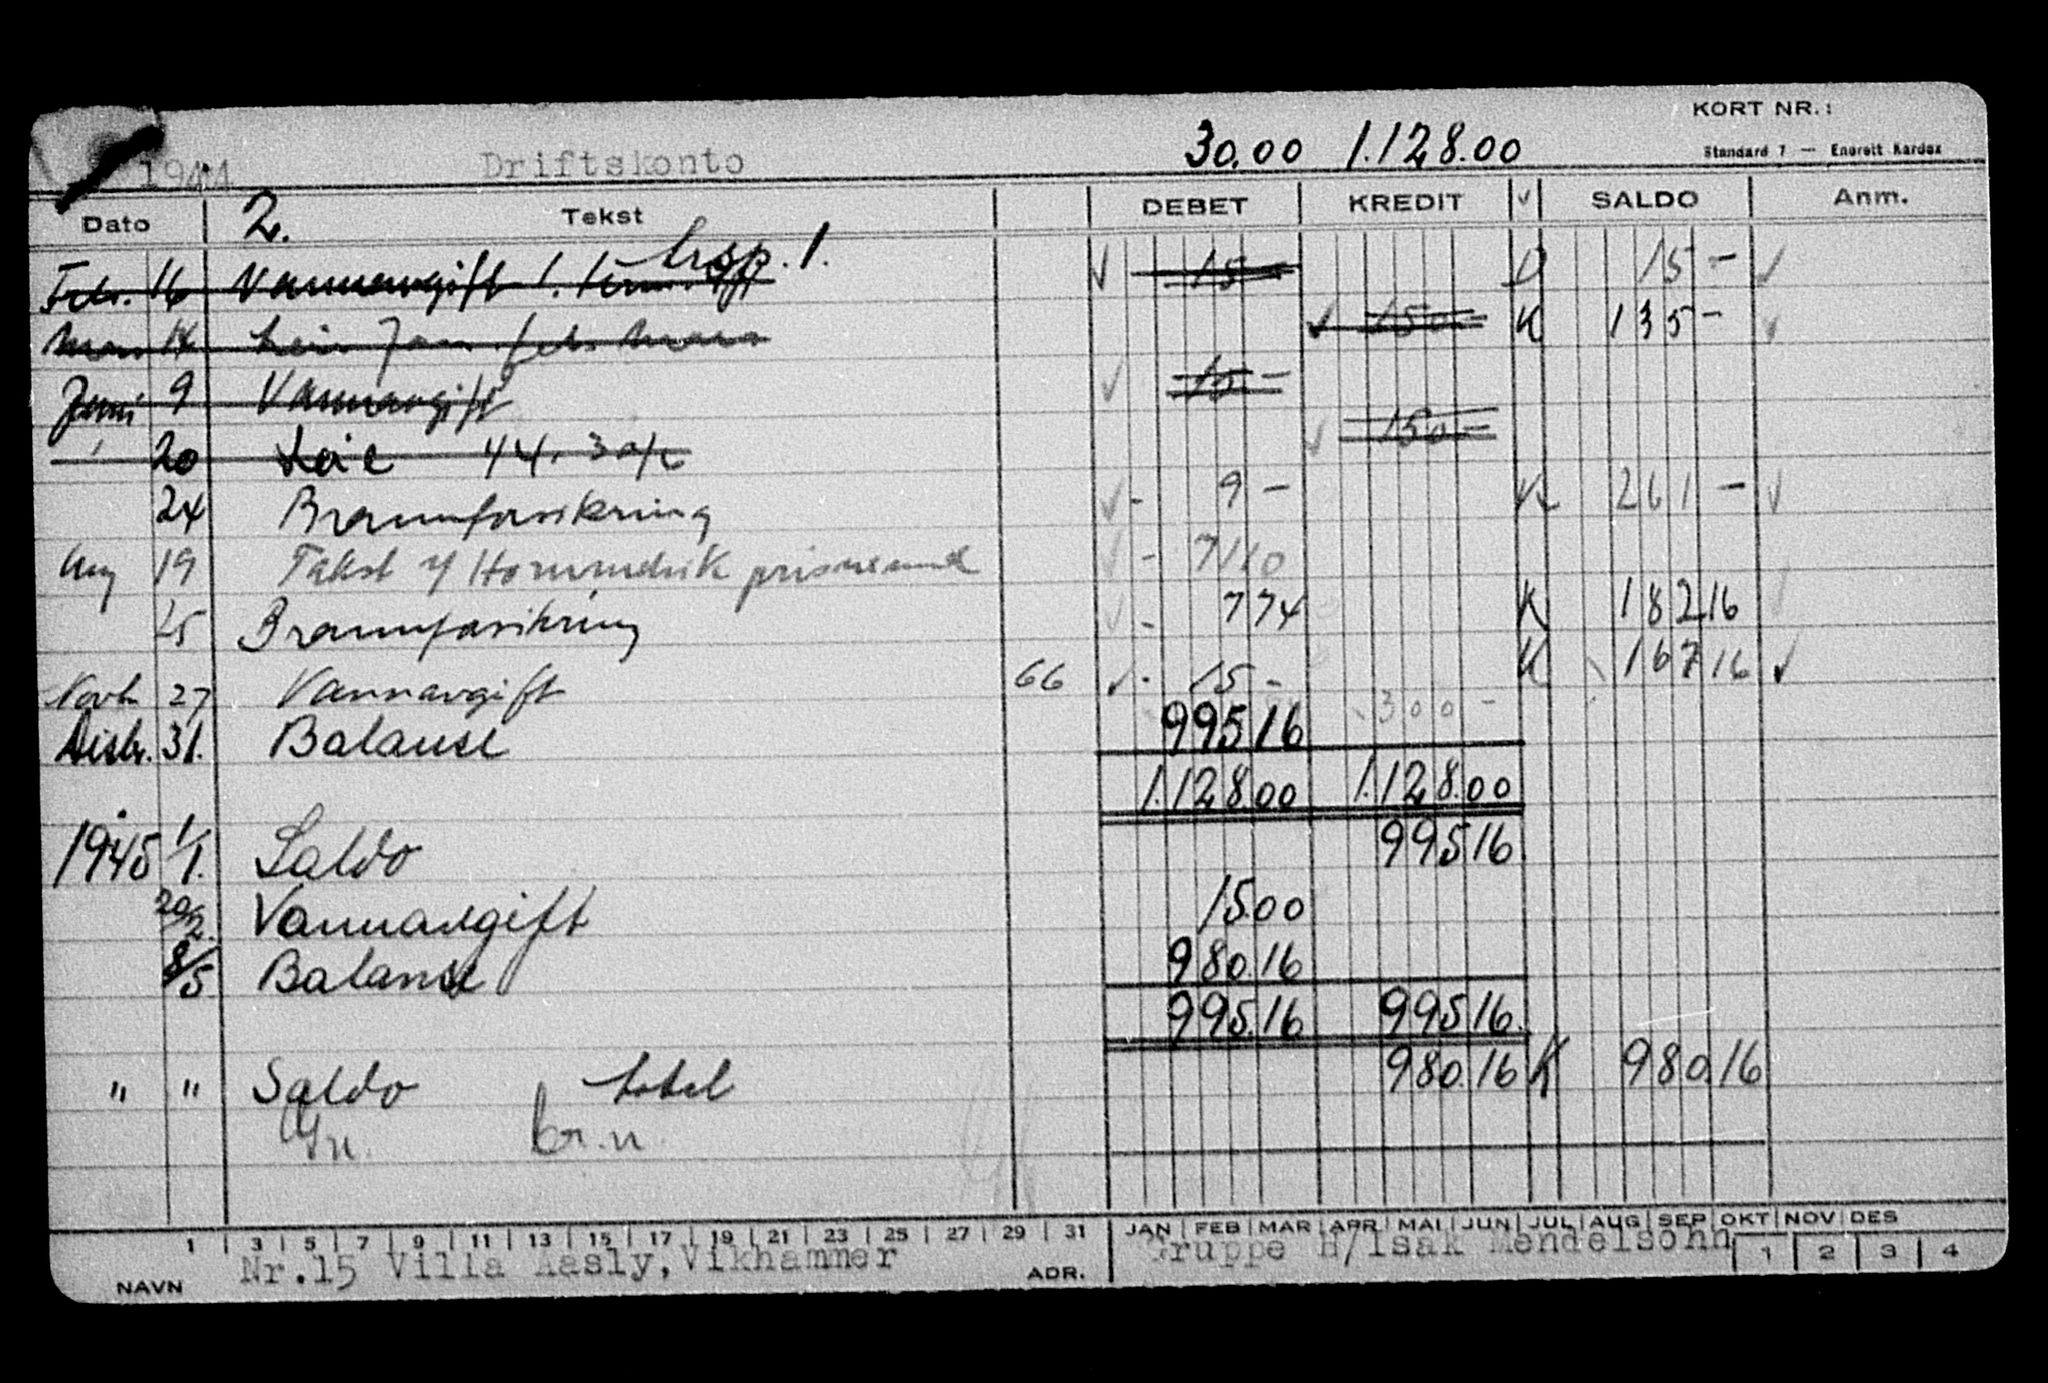 KORT NR.:
30.00 1.128.00
1944 Driftskonto Standard 7 — Enerett Kardex
Dato 2. Tekst DEBET KREDIT √ SALDO Anm.
trsp. 1.
Febr. 16 Vannavgift 1. term. √ 15 D 15 - √
Mars 14 Leie Jan. febr. Mars √ 150 - K 135 - √
Juni 9 Vannavgift √ 15 -
" 20 Leie 44. 30/6 √ 150 -
24 Brannforsikring √ - 9 - K 261 - √
Aug 19 Takst √ - 71 10
25 Brannforsikring √ - 7 74 K 182 16
Novb. 27 Vannavgift 66 √ - 15 - K 167 16 √
300 -
Desbr. 31. Balanse 995 16
1.128.00 1.128.00
1945 1/1. Saldo 995 16
20/2. Vannavgift 15 00
8/5 Balanse 980.16
995.16 995 16.
" " Saldo total 980.16 K 980.16
br.n.
1 3 5 7 9 11 13 15 17 19 21 23 25 27 29 31 JAN FEB MAR APR MAI JUN JUL AUG SEP OKT NOV DES
NAVN Nr.15 Villa Aasly, Vikhammer ADR. Gruppe H/Isak Mendelsohn 1 2 3 4